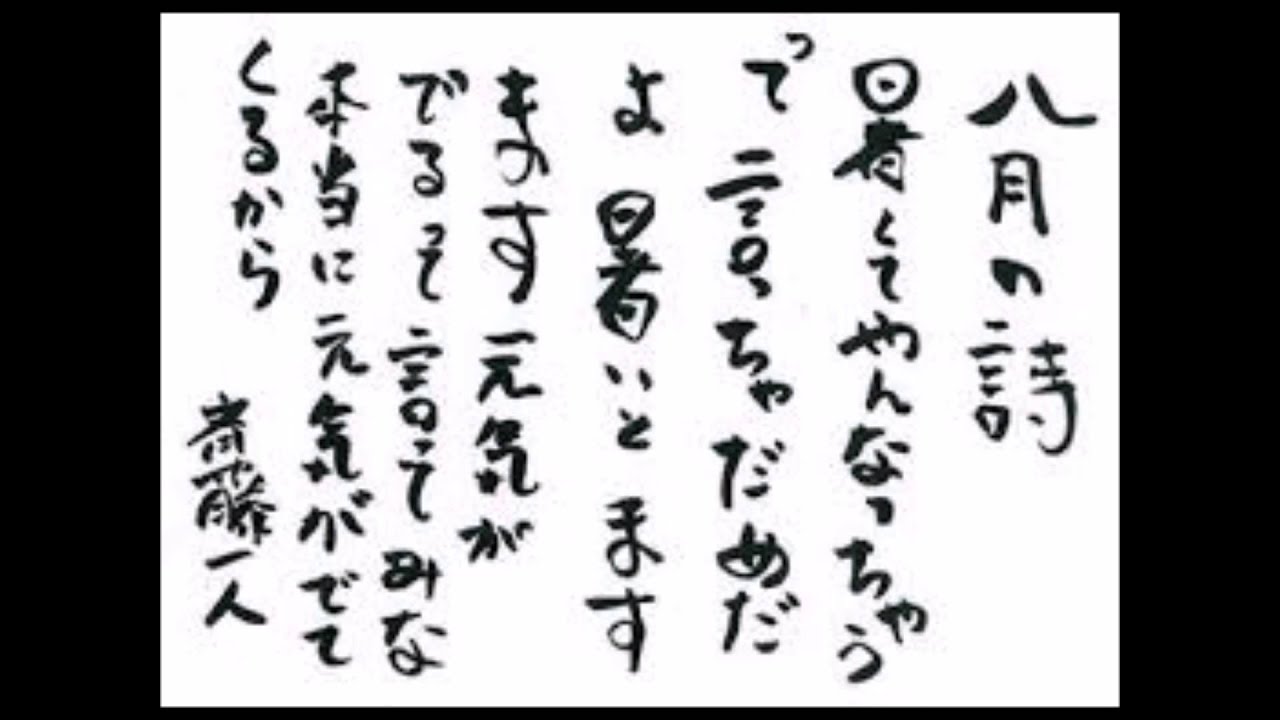 八月の詩
暑くてやんなっちゃう
って言っちゃだめだ
よ 暑いと ます
ます元気が
でるって言ってみな
本当に元気がでて
くるから
斎藤一人